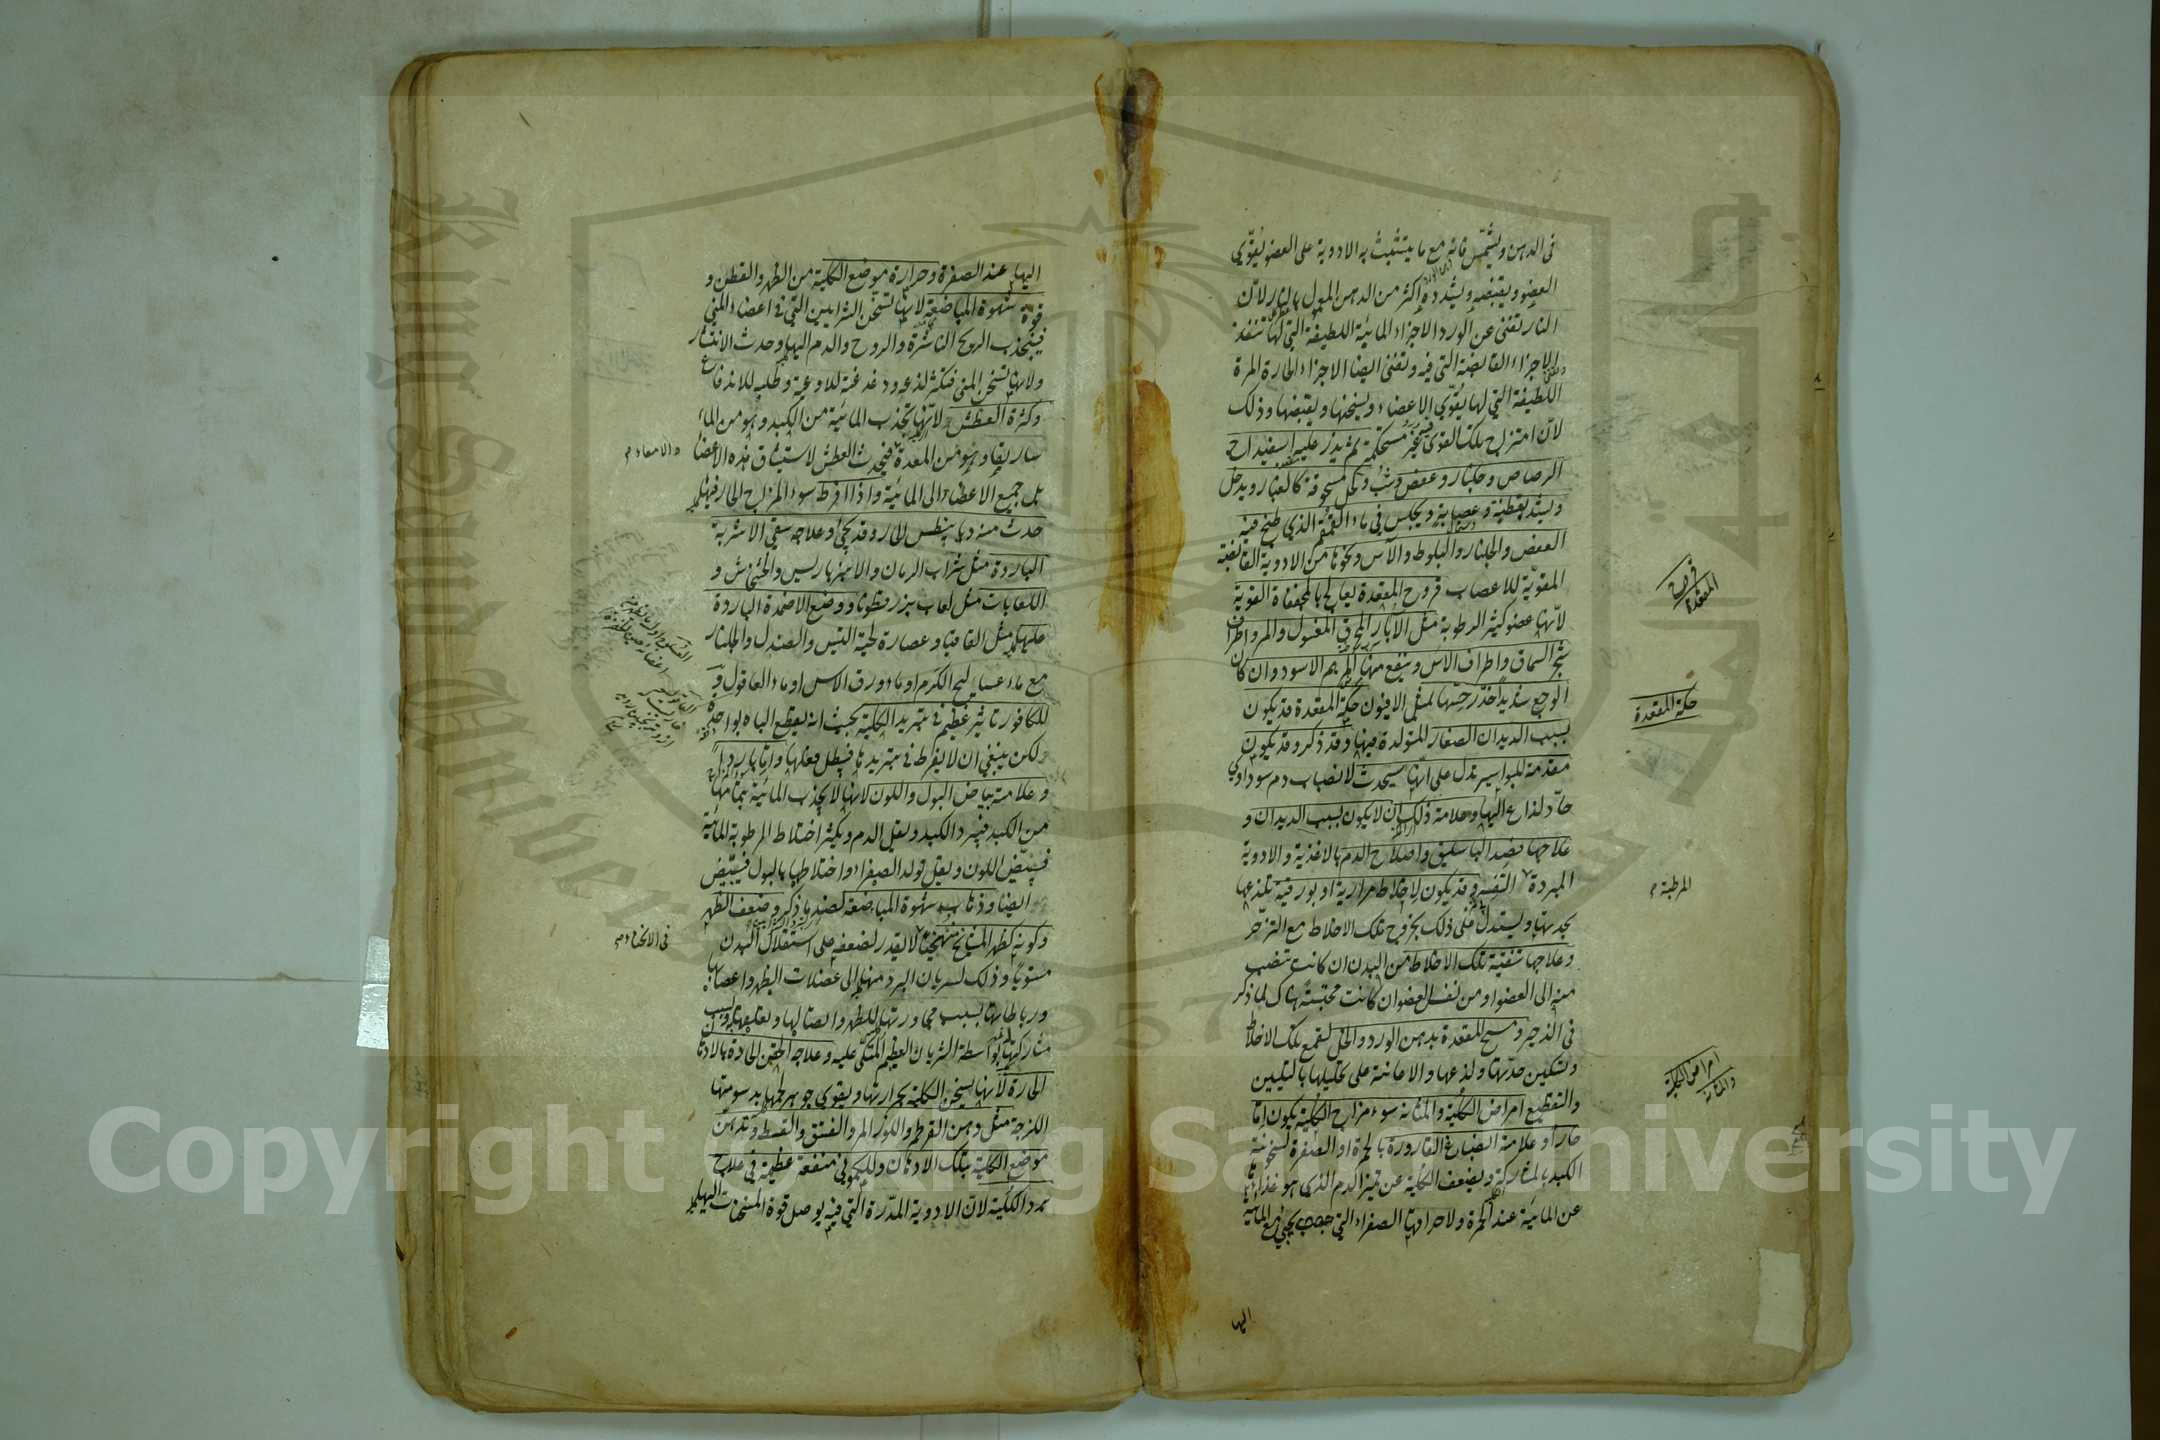 فى الدهن ويشمس فانه مع ما يتشبث به الادوية على العضو يقوى
العضو ويقبضه ويشدده اكثر من الدهن المعمول بالنار لان
النار تفنى عن الورد الاجزاء المائية اللطيفة التى لها تنفذ
الاجزاء القابضة التى فيه وتفنى ايضا الاجزاء الحارة المرة
اللطيفة التى لها يقوى الاعضاء ويسخنها ويقبضها وذلك
لان امتزاج تلك القوى غير مستحكمة ثم يذر عليه اسفيداج
الرصاص وجلنار وعفص وشب وكحل مسحوقة كالغبار ويدخل
ويشد بقطنة وعصابة ويجلس فى ماء القمقم الذى طبخ فيه
العفص والجلنار والبلوط والآس ونحوها من الادوية القابضة
المقوية للاعصاب قروح المقعدة يعالج بالمجففات القوية
لانها عضو كثير الرطوبة مثل الآبار المحرق المغسول والمر واطراف
شجر السماق واطراف الآس وينفع منها المرهم الاسود وان كان
الوجع شديدا خدر حسها بمثل الافيون حكة المقعدة قد يكون
بسبب الديدان الصغار المتولدة فيها وقد ذكر وقد يكون
مقدمة للبواسير تدل على انها سيحدث لانصباب دم سوداوى
حاد لذاع اليها وعلامة ذلك ان لا يكون بسبب الديدان و
علاجها فصد الباسليق واصلاح الدم بالاغذية والادوية
المبردة التفهة وقد يكون لاخلاط مرارية او بورقية تلذعها
بحدتها ويستدل على ذلك بخروج تلك الاخلاط مع التزحر
وعلاجها تنقية تلك الاخلاط من البدن ان كانت تنصب
منه الى العضو او من نفس العضو ان كانت محتبسة هناك لما ذكر
فى الزحير ومسح المقعدة بدهن الورد والخل لقمع تلك الاخلاط
وتسكين حدتها ولذعها والاعانة على تحليلها بالتليين
والتقطيع امراض الكلية والمثانة سوء مزاج الكلية يكون اما
حارا وعلامة انصباغ القارورة بالحمرة او الصفرة لسخونة
الكبد بالمشاركة ولضعف الكلية عن تميز الدم الذى هو غذاؤها
عن المائية عند الحمرة ولاحراقها الصفراء التى يجئ مع المائية
اليها
قروح المقعدة
حكة المقعدة
المرطبة
امراض الكلية والمثانة
اليها عند الصفرة وحرارة موضع الكلية من الظهر والقطن و
قوة شهوة المباضعة لانها تسخن الشرايين التى فى اعضاء المنى
فينجذب الريح الناشرة والروح والدم اليها وحدث الانتشار
ولانها تسخن المنى فيكثر لذعه ودغدغته للاوعية وطلبه للاندفاع
وكثرة العطش لانها تجذب المائية من الكبد وهو من الما
ساريقا وهو من المعدة فيحدث العطش لاشتياق هذه الاعضا
بل جميع الاعضاء الى المائية واذا افرط سوء المزاج الحار فيها
حدث منه ديابيطس الحار وقد يجئ وعلاجه سقى الاشربة
الباردة مثل شراب الرمان والامبرباريس والخشخاش و
اللعابات مثل لعاب بزرقطونا ووضع الاضمدة الباردة
عليها مثل اقاقيا وعصارة لحية التيس والصندل والجلنار
مع ماء عساليج الكرم او ماء ورق الآس او ماء العاقول و
للكافور تاثير عظيم فى تبريد الكلية بحيث انه يقطع الباه بواحدة
ولكن ينبغى ان لا يفرط فى تبريدها فيبطل فعلها واما باردا
وعلامته بياض البول واللون لانها لا تجذب المائية بتمامها
من الكبد فيبرد الكبد ويقل الدم ويكثر اختلاط الرطوبة المائية
فيبيض اللون ويقل تولد الصفراء واختلاطها بالبول فيبيض
ايضا وذهاب شهوة المباضعة لضد ما ذكر وضعف الظهر
وكونه كظهر المشايخ منحنيا لا يقدر لضعفه على استقلال البدن
مستويا وذلك لسريان البرد منها الى عضلات الظهر واعصابها
ورباطاتها بسبب مجاورتها للظهر واتصالها وتعلقها به وبسبب
مشاركتها بواسطة الشريان العظيم المتكئ عليه وعلاجه الحقن الحادة بالادهان
الحارة لانها يسخن الكلية بحرارتها ويقوى جوهر لحمها بدسومتها
اللزجة مثل دهن القرطم واللوز المر والفستق والقسط وتدهن
موضع الكلية بتلك الادهان وللكمونى منفعة عظيمة فى علاج
برد الكلية لان الادوية المدرة التى فيه يوصل قوة المسخنات اليها
والامعاء
فى الانحناء